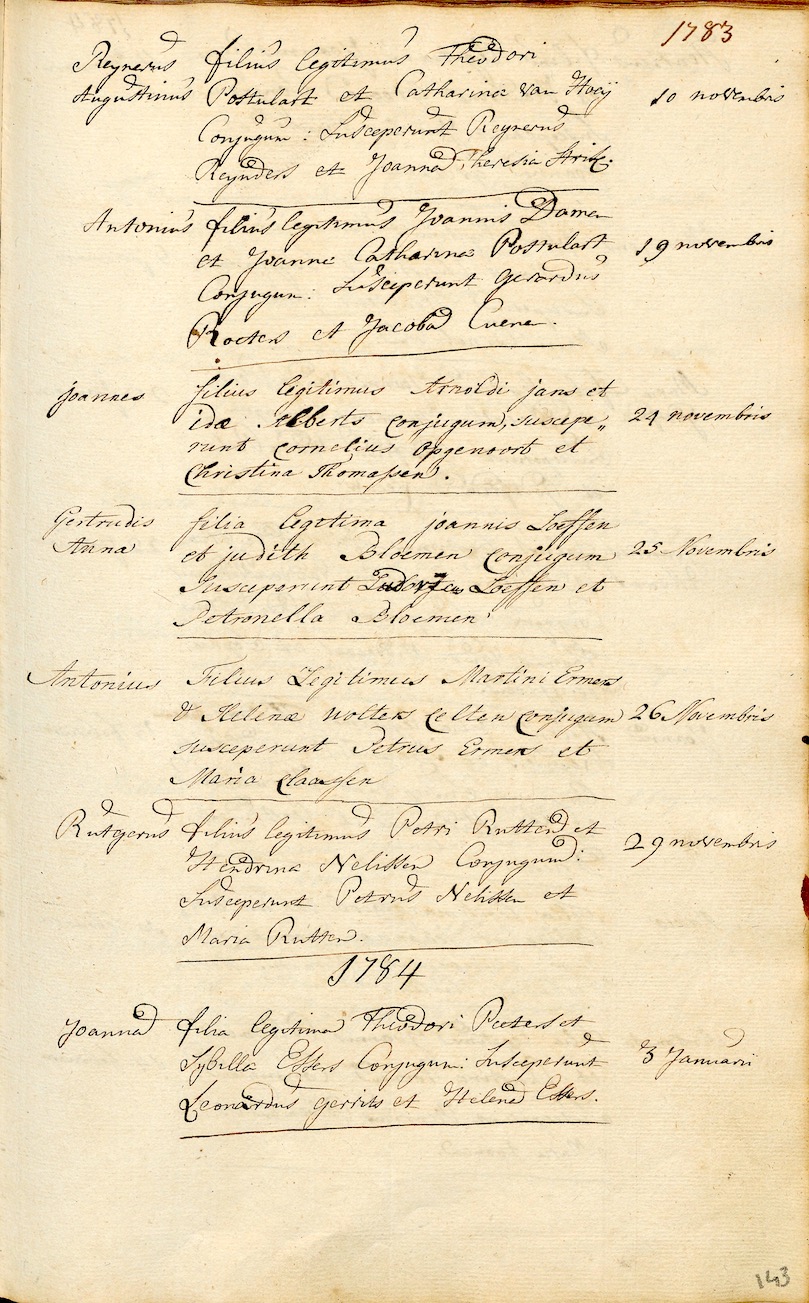 1783
Reynerus filius legitimus Theodori
Augustinus Postulart et Catharina van Hoeij 10 novembris
Conjugum : Susceperunt Reynerus
Reynders et Joanna Theresia
Antonius filius legitimus Joannis Damen
et Joanne Catharina Postulart 19 novembris
Conjugum : Susceperunt Gerardus
Roeters et Jacoba Cuene.
joannes filius legitimus Arnoldi jans et
idæ Alberts conjugum, suscepe„ 24 novembris
runt cornelius opgenoort et
Christina Thomassen.
Gertrudis filia legitima joannis Loeffen
Anna et judith Bloemen conjugum 25 Novembris
susceperunt Loeffen et
Petronella Bloemen
Antonius Filius Legitimus Martini Ermers
& Helenæ wolters celten conjugum 26 Novembris
susceperunt Petrus Ermers et
Maria Claassen
Rutgerus filius legitimus Petri Rutten et
Hendrina Nelissen Conjugum : 29 novembris
Susceperunt Petrus Nelissen et
Maria Rutten.
1784
Joanna filia legitima Theodori Peeters et
Sybilla Essers Conjugum : Susceperunt 3 Januarii
Leonardus gerrits et Helena Essers.
143